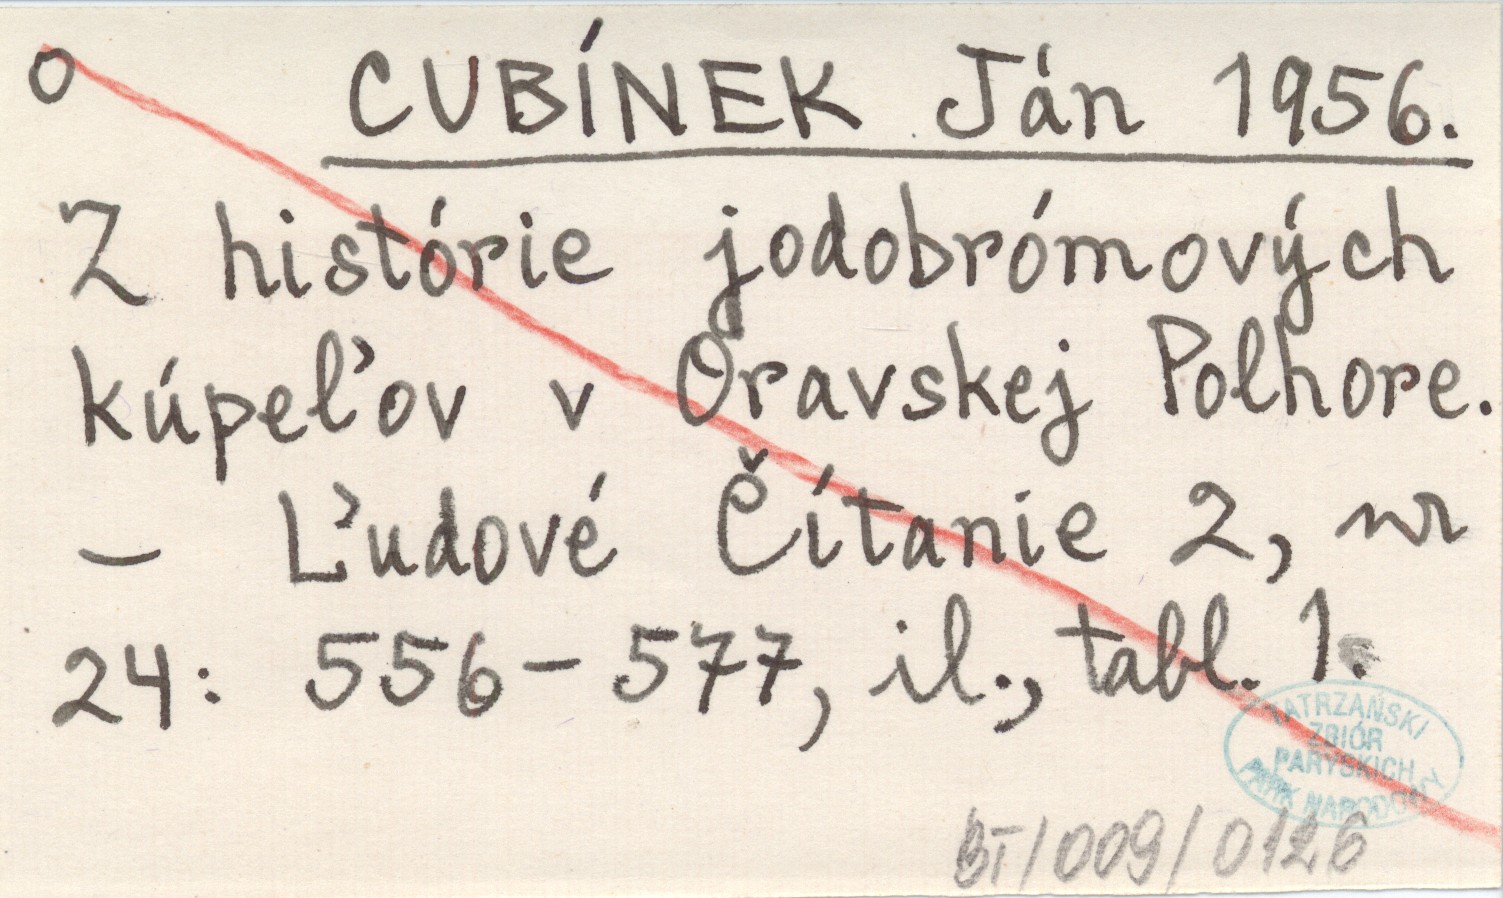 o CUBÍNEK Ján 1956.
Z histórie jodobrómových
kúpeľov v Oravskej Polhore.
– Ľudové Čítanie 2, nr
24: 556–577, il., tabl. 1.
TATRZAŃSKI
ZBIÓR
PARYSKICH
PARK NARODOWY
BT/009/0126